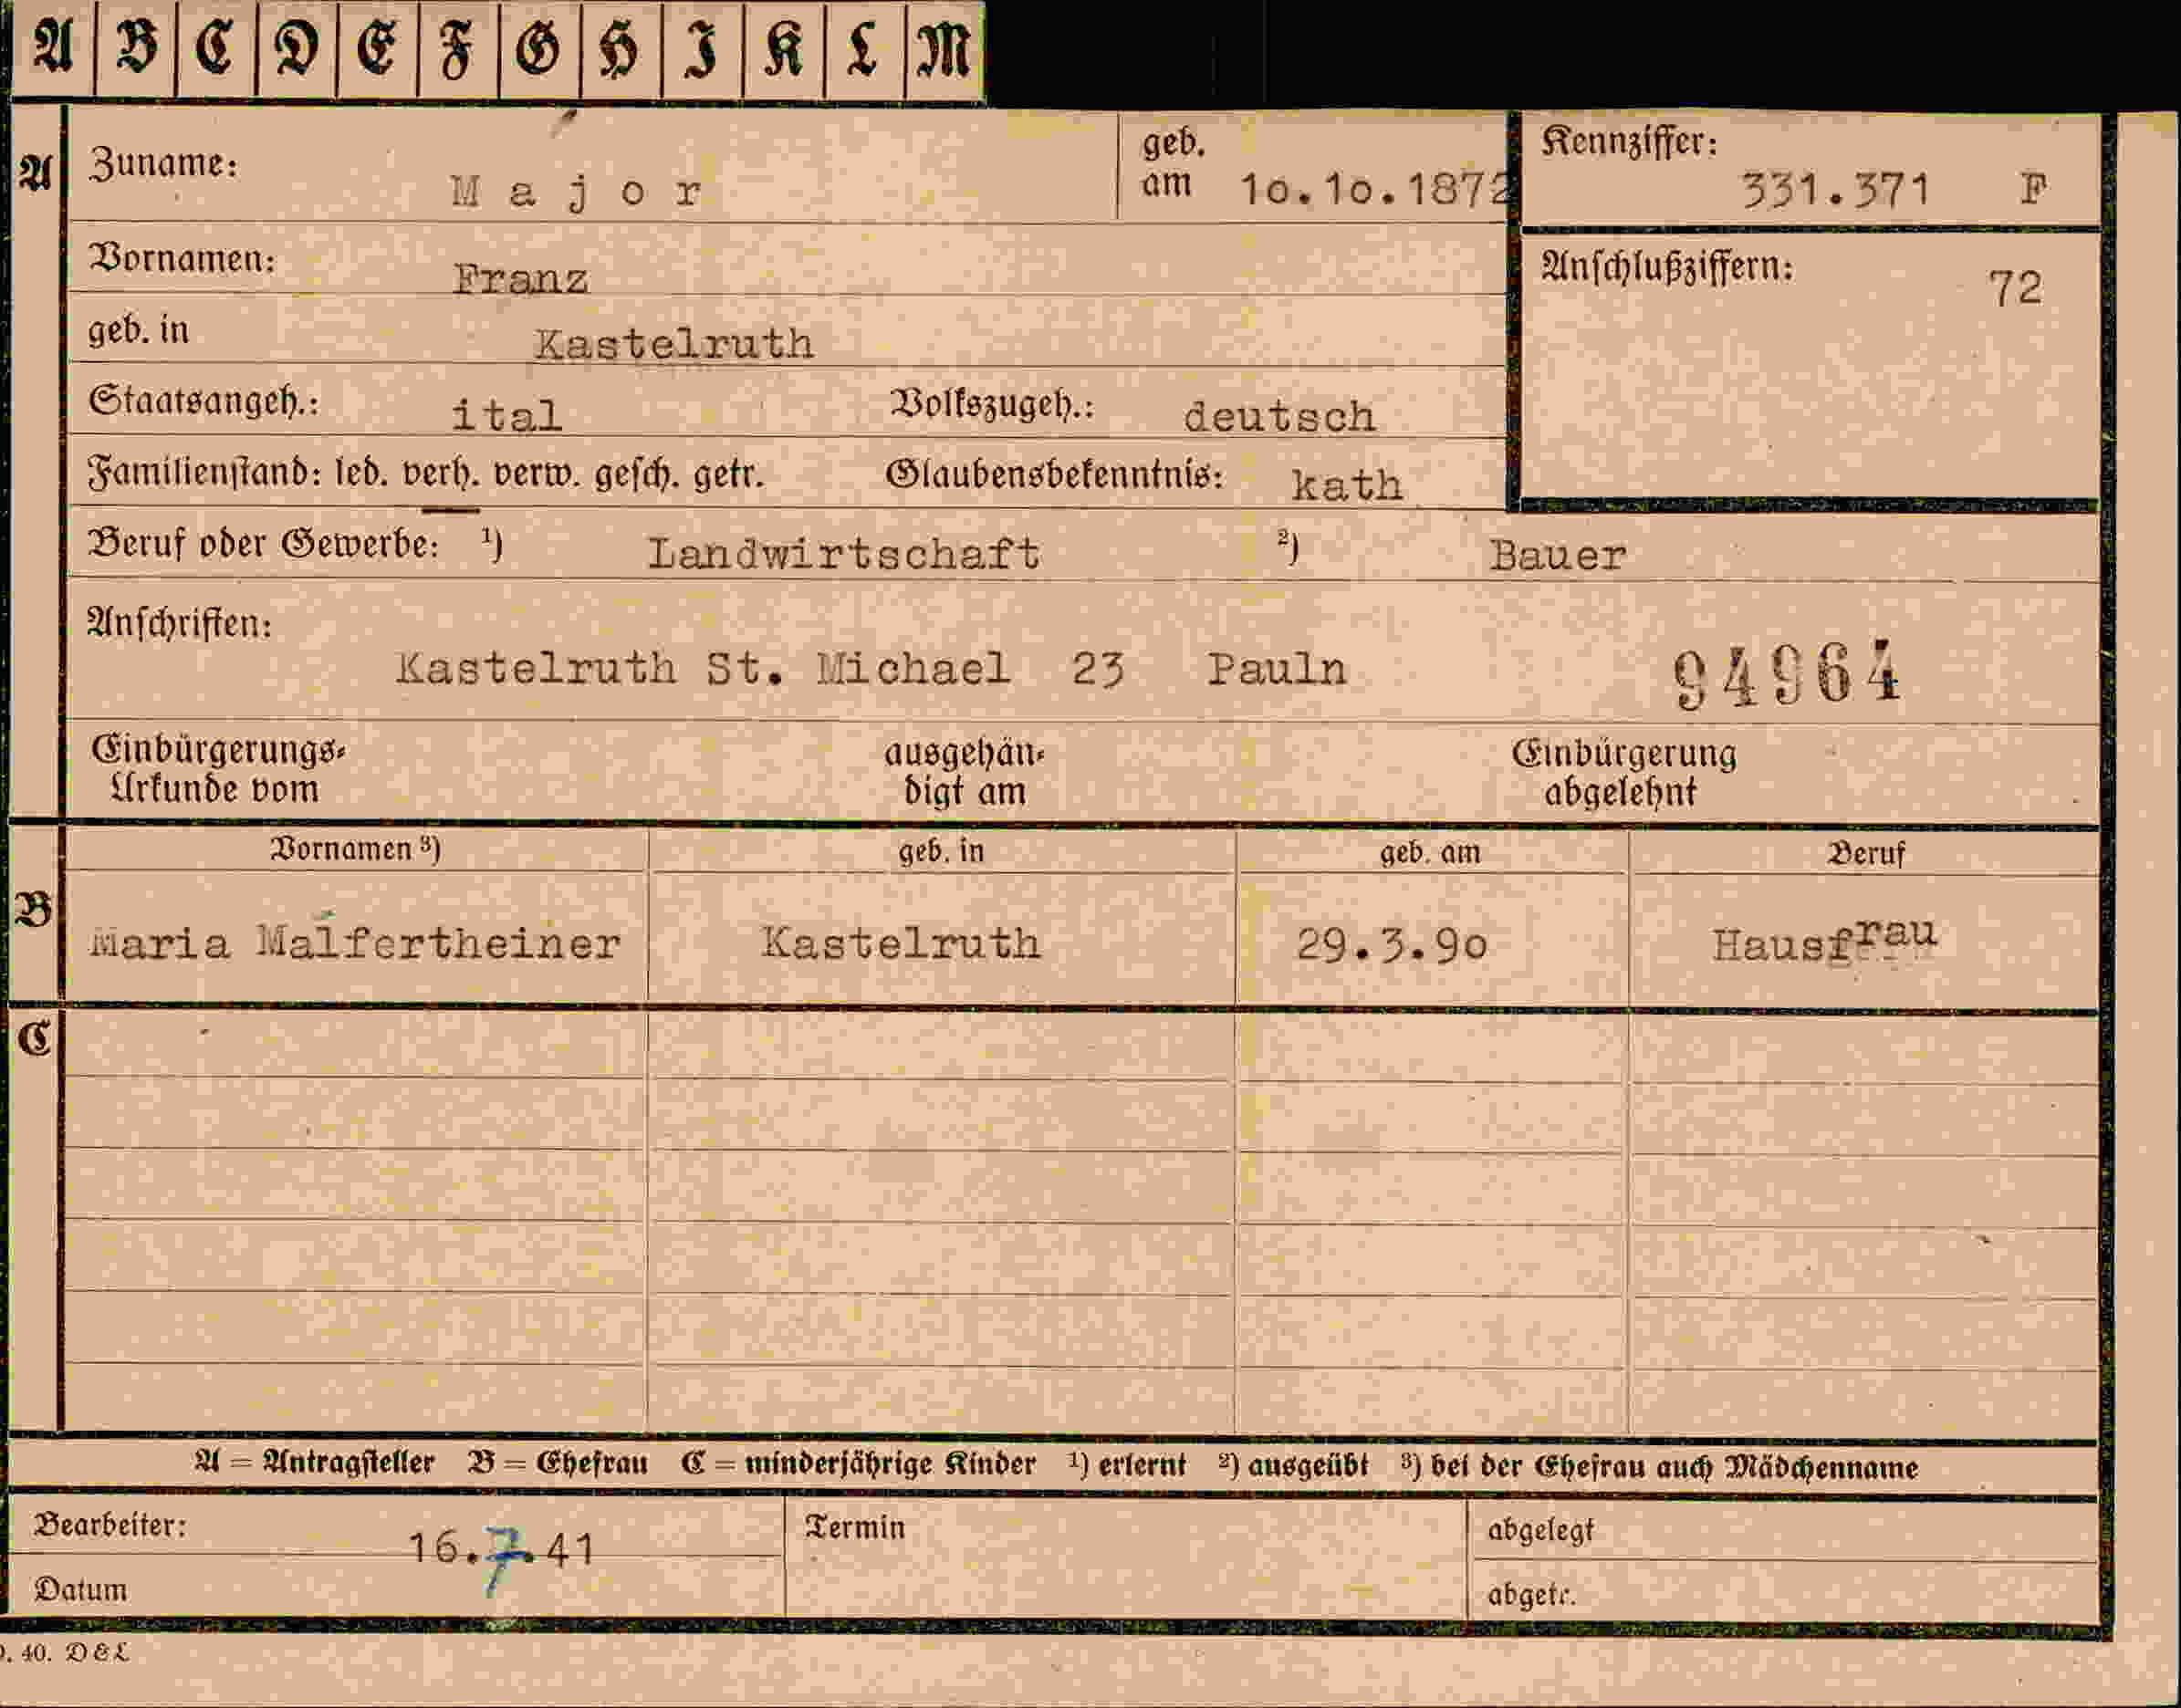 A B C D E F G H I K L M
A Zuname: Major geb. am 10.10.1872 Kennziffer: 331.371 F
Vornamen: Franz Anschlußziffern: 72
geb. in Kastelruth
Staatsangeh.: ital Volkszugeh.: deutsch
Familienstand: led. verh. verw. gesch. getr. Glaubensbekenntnis: kath
Beruf oder Gewerbe: ¹) Landwirtschaft ²) Bauer
Anschriften:
Kastelruth St. Michael 23 Pauln 94964
Einbürgerungs- ausgehän- Einbürgerung
Urkunde vom digt am abgelehnt
Vornamen ³) geb. in geb. am Beruf
B Maria Malfertheiner Kastelruth 29.3.90 Hausfrau
C
A = Antragsteller B = Ehefrau C = minderjährige Kinder ¹) erlernt ²) ausgeübt ³) bei der Ehefrau auch Mädchenname
Bearbeiter: 16.7.41 Termin abgelegt
Datum abgetr.
. 40. D&L